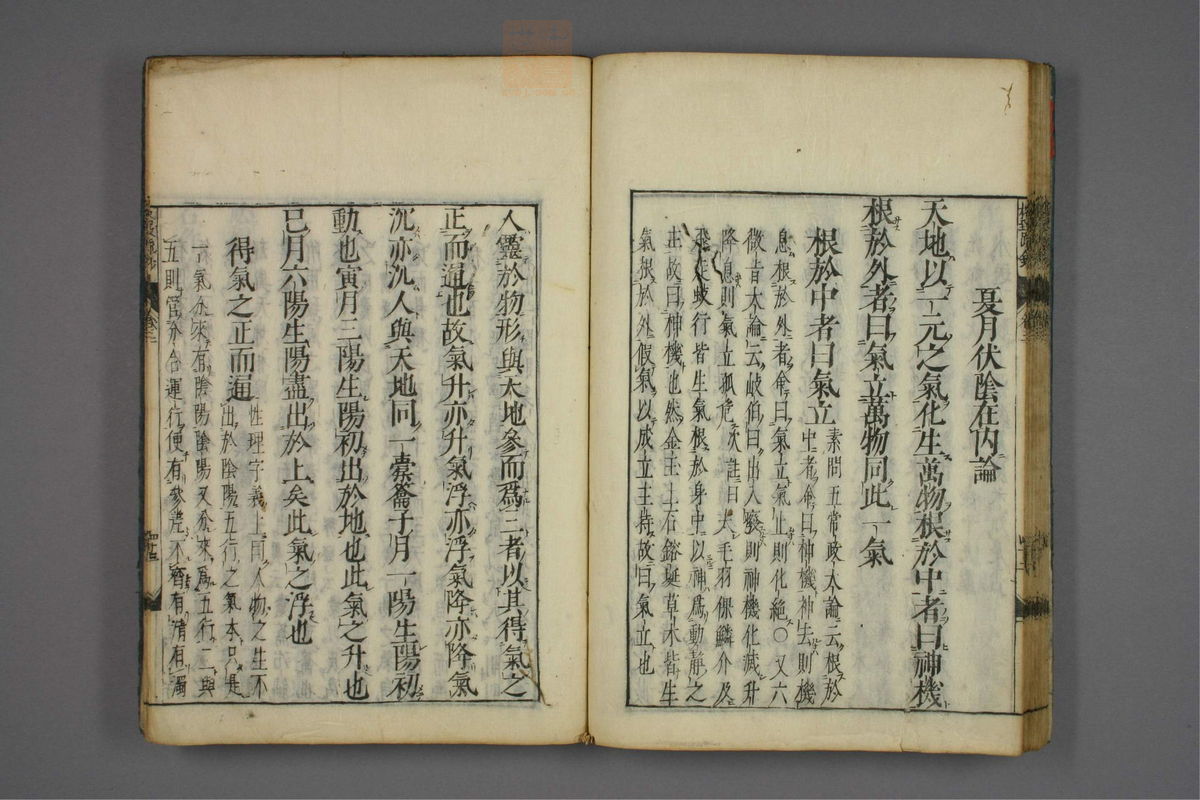 夏月伏陰在内論
天地以一元之氣化生萬物根於中者曰神機
根於外者曰氣立萬物同此一氣
根於中者曰氣立素問五常政大論云根於
中者命曰神機神去則機
息根於外者命曰氣立氣止則化絶○又六
微旨大論云岐伯曰出入廢則神機化滅升
降息則氣立孤危次註曰夫毛羽倮鱗介及
飛走蚑行皆生氣根於身中以神爲動靜之
主故曰神機也然金玉土石鎔埏草木皆生
氣根於外假氣以成立主持故曰氣立也
人靈於物形與天地參而爲三者以其得氣之
正而通也故氣升亦升氣浮亦浮氣降亦降氣
沉亦沉人與天地同一橐籥子月一陽生陽初
動也寅月三陽生陽初出於地也此氣之升也
巳月六陽生陽盡出於上矣此氣之浮也
得氣之正而通性理字義上曰人物之生不
出於陰陽五行之氣本只是
一氣分來有陰陽陰陽又分來爲五行二與
五則管分合運行便有參差不齊有清有濁